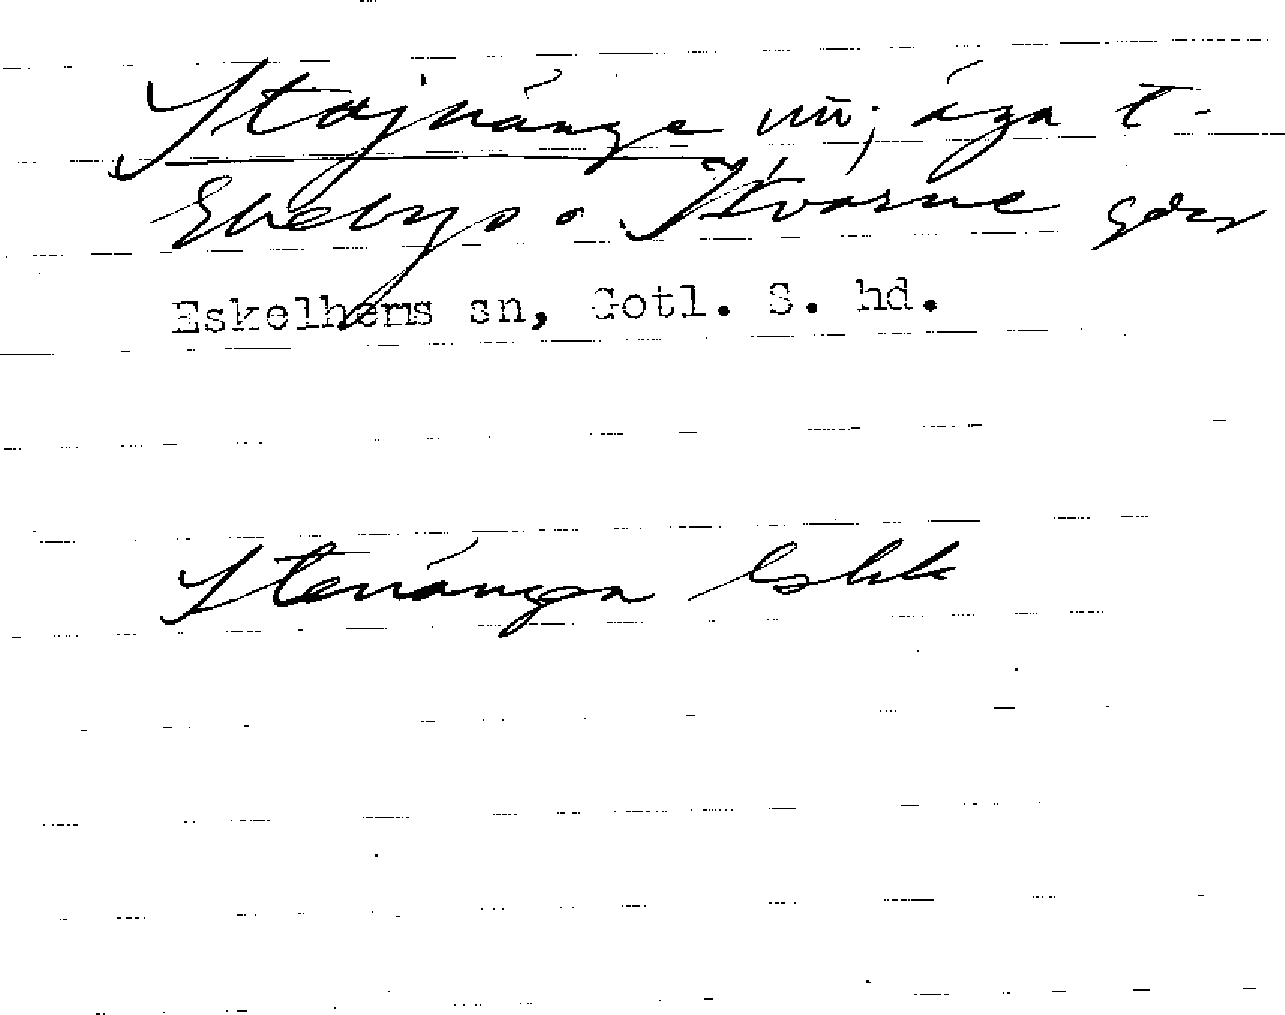 Stajnänge un; äga t.
Ekebys o. Stvarne gdr
Eskelhems sn, Gotl. S. hd.
Stenänga Eskh